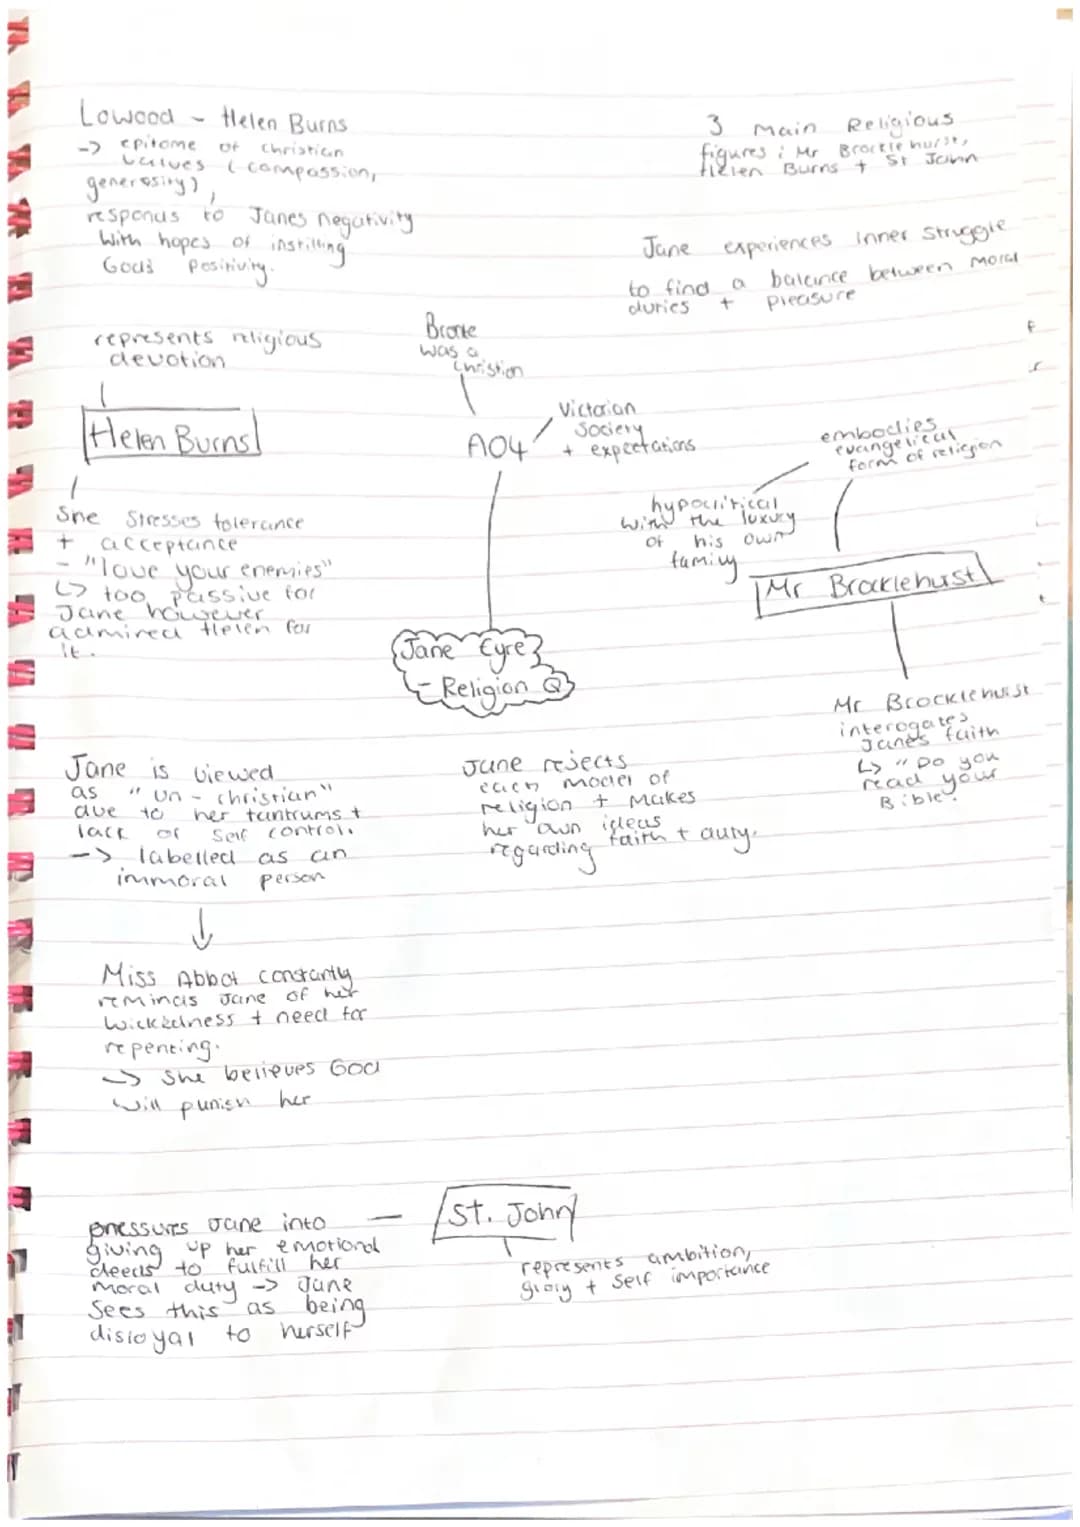 Lowood - Helen Burns
-> epitome of christian
values (compassion,
generosity),
responds to Janes negativity
with hopes of instilling
God's positivity.
3 main Religious
figures: Mr Brocklehurst,
Helen Burns + St John
Jane experiences inner struggle
to find a balance between moral
duties + pleasure
represents religious
devotion
Helen Burns
She stresses tolerance
+ acceptance
- "love your enemies"
↳ too passive for
Jane however
admired Helen for
it.
Bronte
was a
christian
AO4
Victorian
Society
+ expectations
Jane Eyre
- Religion Q
embodies
evangelical
form of religion
hypocritical
with the luxury
of his own
family
Mr Brocklehurst
Mr Brocklehurst
interogates
Janes faith
↳ "Do you
read your
Bible".
Jane is viewed
as "un-christian"
due to her tantrums +
lack of self control.
-> labelled as an
immoral person
↓
Miss Abbot constantly
reminds Jane of her
wickedness + need for
repenting.
-> she believes God
will punish her
Jane rejects
each model of
religion + makes
her own ideas
regarding faith + duty.
St. John
pressures Jane into
giving up her emotional
deeds to fulfill her
moral duty -> Jane
sees this as being
disloyal to herself
represents ambition,
glory + self importance